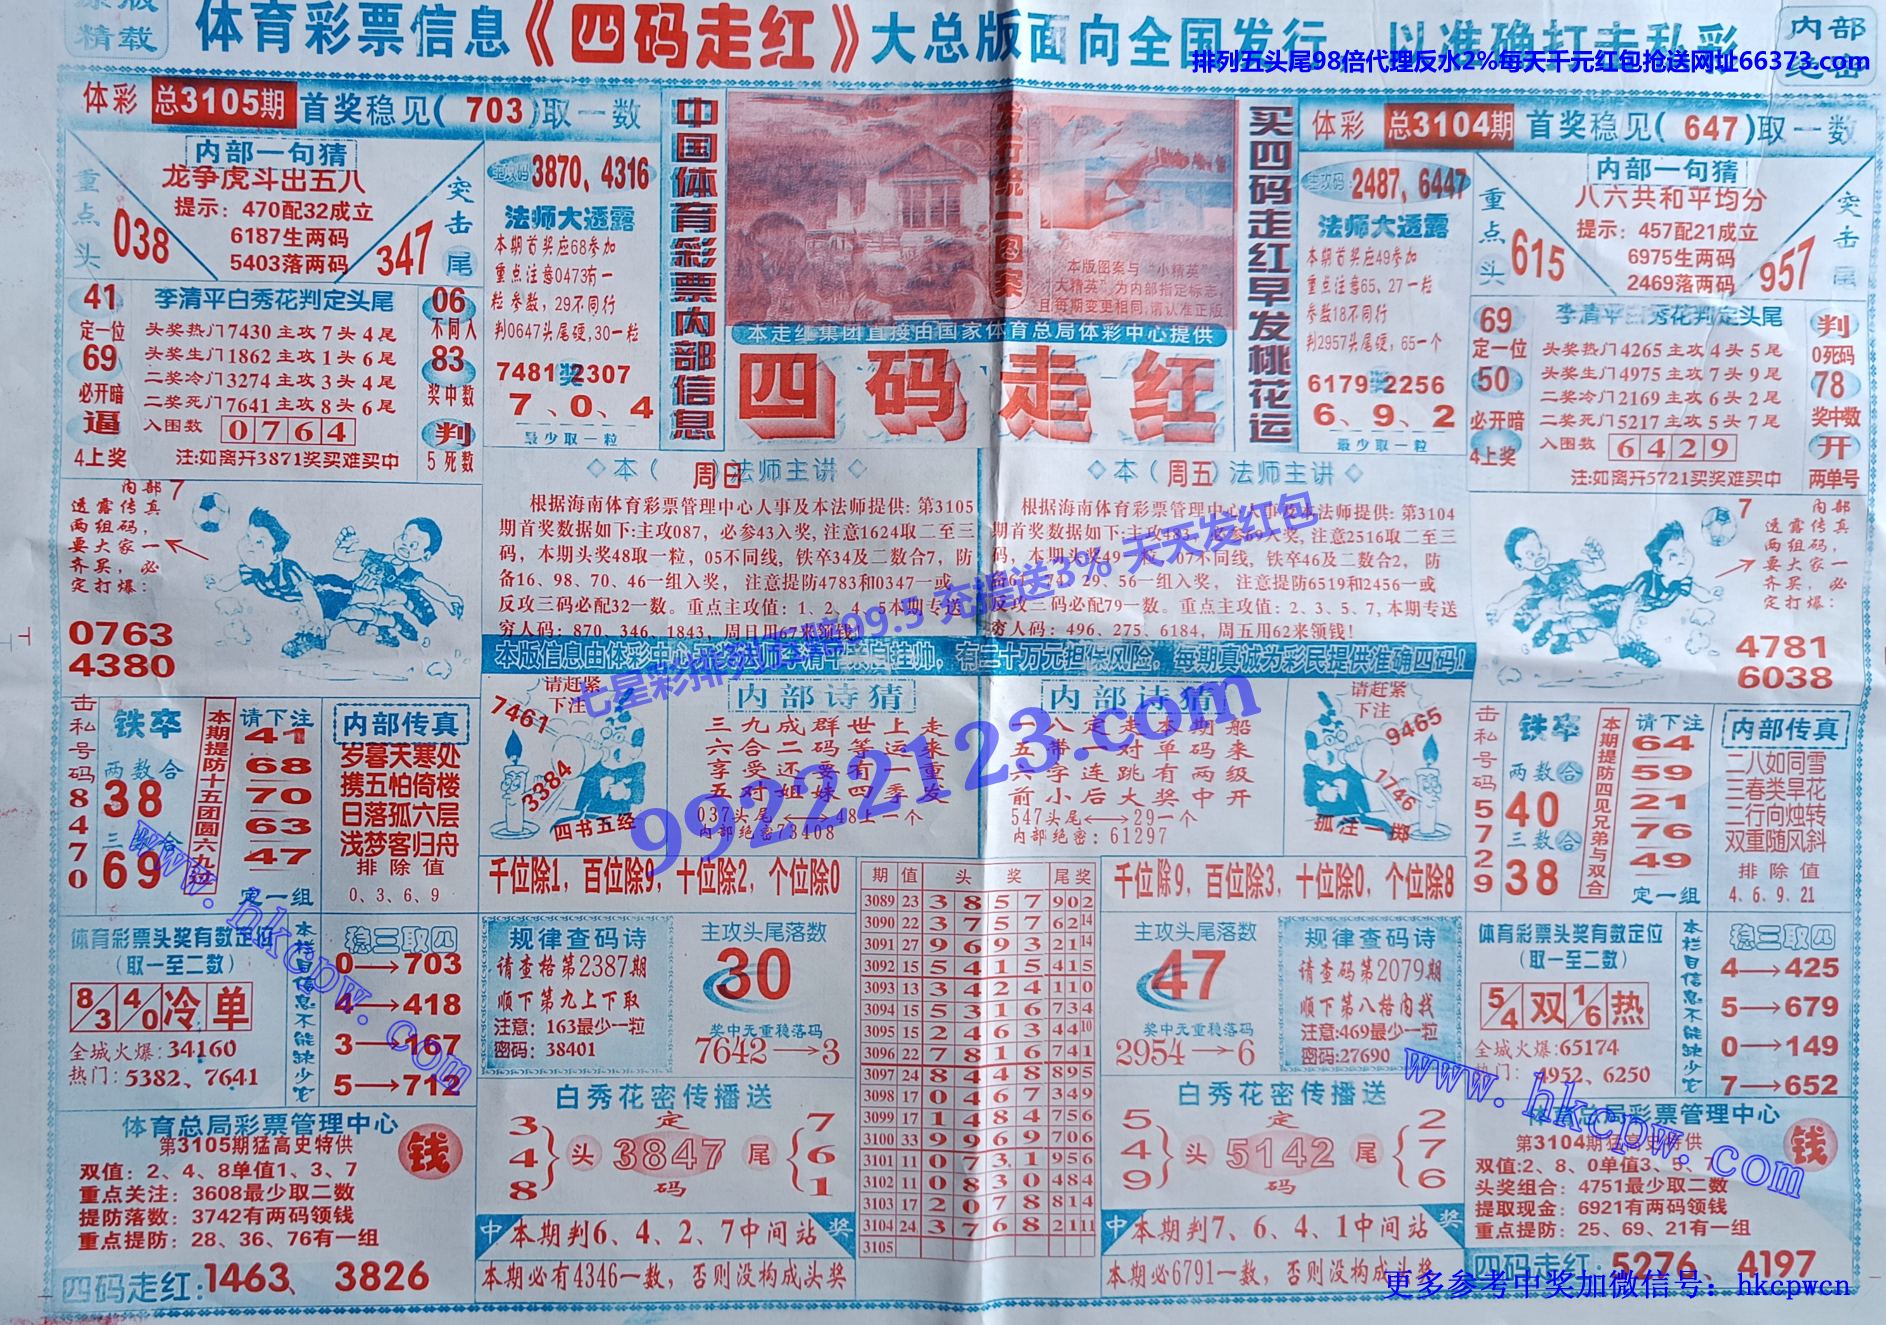 原版
精载
体育彩票信息《四码走红》大总版面向全国发行，以准确打击私彩
内部
绝密
排列五头尾98倍代理反水2%每天千元红包抢送网址66373.com
体彩 总3105期 首奖稳见(703)取一数
内部一句猜
龙争虎斗出五八
提示：470配32成立
6187生两码
5403落两码
重点头
038
突击尾
347
主攻码 3870、4316
法师大透露
本期首奖应68参加
重点注意0473有一
粒参数，29不同行
判0647头尾硬,30一粒
7481奖2307
7、0、4
最少取一粒
41
定一位
69
必开暗
逼
4上奖
李清平白秀花判定头尾
头奖热门7430主攻7头4尾
头奖生门1862主攻1头6尾
二奖冷门3274主攻3头4尾
二奖死门7641主攻8头6尾
入围数 0764
注:如离开3871奖买难买中
06
不同入
83
奖中数
判
5死数
中国体育彩票内部信息
发行统一图案
本版图案与"小精英"
大精英"为内部指定标志
且每期变更相同,请认准正版
本走红集团直接由国家体育总局体彩中心提供
四码走红
买四码走红早发桃花运
体彩 总3104期 首奖稳见(647)取一数
主攻码 2487、6447
法师大透露
本期首奖应49参加
重点注意65、27一粒
参数18不同行
判2957头尾硬，65一个
6179奖2256
6、9、2
最少取一粒
内部一句猜
八六共和平均分
提示：457配21成立
6975生两码
2469落两码
重点头
615
突击尾
957
69
定一位
50
必开暗
4上奖
李清平白秀花判定头尾
头奖热门4265主攻4头5尾
头奖生门4975主攻7头9尾
二奖冷门2169主攻6头2尾
二奖死门5217主攻5头7尾
入围数 6429
注:如离开5721买奖难买中
判
0死码
78
奖中数
开
两单号
内部7
透露传真
两组码，
要大家一
齐买，必
定打爆：
0763
4380
◇本（周日）法师主讲◇
根据海南体育彩票管理中心人事及本法师提供：第3105
期首奖数据如下:主攻087，必参43入奖，注意1624取二至三
码，本期头奖48取一粒，05不同线，铁卒34及二数合7，防
备16、98、70、46一组入奖， 注意提防4783和0347一或
反攻三码必配32一数。重点主攻值：1、2、4、5本期专送
穷人码：870、346、1843，周日用67来领钱!
◇本（周五）法师主讲◇
根据海南体育彩票管理中心人事及本法师提供：第3104
期首奖数据如下:主攻483，必参69入奖，注意2516取二至三
码，本期头奖49一粒，07不同线，铁卒46及二数合2，防
备67、74、29、56一组入奖，注意提防6519和2456一或
反攻三码必配79一数。重点主攻值：2、3、5、7,本期专送
穷人码：496、275、6184，周五用62来领钱!
内部
7
透露传真
两组码，
要大家一
齐买，必
定打爆：
4781
6038
七星彩排列五99.5 充提送3% 天天发红包
99222123.com
击私号码84770
铁卒
两数合
38
三数合
69
本期提防十五团圆六九过
请下注
41
68
70
63
47
定一组
内部传真
岁暮天寒处
携五怕倚楼
日落孤六层
浅梦客归舟
排除值
0、3、6、9
请赶紧
下注
7461
3384
四书五经
内部诗猜
三九成群世上走
六合二码等运来
享受还要有一重
五对姐妹四季发
037头尾←→48上一个
内部绝密73408
内部诗猜
一八定走本期船
五带一对单码来
六字连跳有两级
前小后大奖中开
547头尾←→29一个
内部绝密：61297
请赶紧
下注
9465
1746
孤注一掷
击私号码5729
铁卒
两数合
40
三数合
38
本期提防四见兄弟与双合
请下注
64
59
21
76
49
定一组
内部传真
二八如同雪
三春类早花
二行向烛转
双重随风斜
排除值
4、6、9、21
千位除1，百位除9，十位除2，个位除0
千位除9，百位除3，十位除0，个位除8
期 值 头奖 尾奖
3089 23 3857 902
3090 22 3757 6214
3091 27 9693 2114
3092 15 5415 415
3093 13 3424 110
3094 15 5316 734
3095 15 2463 4410
3096 22 7816 741
3097 24 8448 895
3098 17 0467 349
3099 17 1484 756
3100 33 9969 706
3101 11 0731 956
3102 11 0830 484
3103 17 2078 814
3104 24 3768 2111
3105
体育彩票头奖有数定位
（取一至二数）
8/3 4/0 冷 单
全城火爆：34160
热门：5382、7641
本栏目信息不能缺少它
稳三取四
0→703
4→418
3→167
5→712
规律查码诗
请查格第2387期
顺下第九上下取
注意：163最少一粒
密码：38401
主攻头尾落数
30
奖中无重稳落码
7642→3
主攻头尾落数
47
奖中无重稳落码
2954→6
规律查码诗
请查码第2079期
顺下第八格内找
注意:469最少一粒
密码:27690
体育彩票头奖有数定位
（取一至二数）
5/4 双 1/6 热
全城火爆:65174
热门：4952、6250
本栏目信息不能缺少它
稳三取四
4→425
5→679
0→149
7→652
体育总局彩票管理中心
第3105期猛高史特供
钱
双值：2、4、8单值1、3、7
重点关注：3608最少取二数
提防落数：3742有两码领钱
重点提防：28、36、76有一组
四码走红:1463、3826
白秀花密传播送
3
4
8
头
定
3847
码
尾
7
6
1
中 本期判6、4、2、7中间站 奖
本期必有4346一数，否则没构成头奖
白秀花密传播送
5
4
9
头
定
5142
码
尾
2
7
6
中 本期判7、6、4、1中间站 奖
本期必6791一数，否则没构成头奖
体育总局彩票管理中心
第3104期猛高史特供
钱
双值:2、8、0单值3、5、7
头奖组合：4751最少取二数
提取现金：6921有两码领钱
重点提防：25、69、21有一组
四码走红:5276、4197
www.hkcpw.com
www.hkcpw.com
更多参考中奖加微信号：hkcpwcn